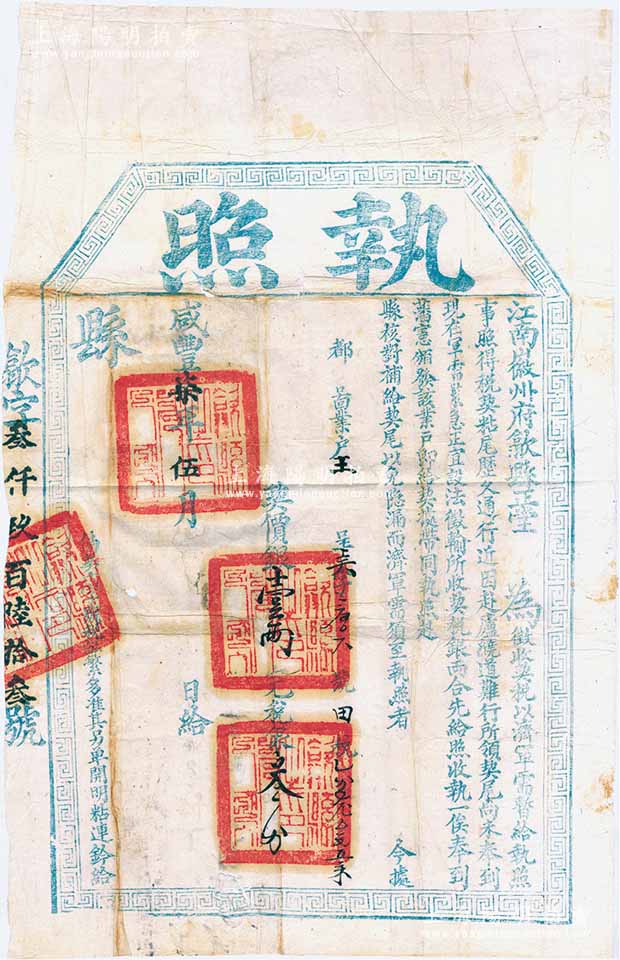 執照
江南徽州府歙縣正堂 為徵收契稅以濟軍需暫給執照
事照得稅契粘尾歷久通行近因赴廬鳳道難行所領契尾尚未奉到
現在軍需緊急正宜設法徵輸所收契稅銀兩合先給照收執一俟奉到
藩憲頒發該業戶即將契紙帶同執照赴
縣核對補給契尾以免隱漏而濟軍需須至執照者 今據
都 啚業戶王 呈 號田稅
契價銀壹兩 完稅銀叁分
咸豐柒年伍月 日給
縣
繁多准其另單開明粘連鈐給
歙字叁仟玖百陸拾叁號
上海陽明拍賣
www.yangmingauction.com